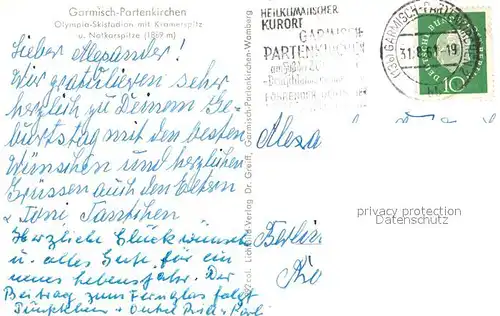 Garmisch-Partenkirchen
Olympia-Skistadion mit Kramerspitz
u. Notkarspitze (1889 m)
Lieber Alexander!
Wir gratulieren sehr
herzlich zu Deinem Ge-
burtstag mit den besten
Wünschen und herzlichen
Grüssen auch den Eltern
Toni Tantchen
Herzliche Glückwünsche
u. alles Gute für ein
neues Lebensjahr. Der
Beitrag zum Fernglas folgt
Onkel
Lichtbild-Verlag Dr. Greiff, Garmisch-Partenkirchen-Wamberg
HEILKLIMATISCHER
KURORT
GARMISCH-
PARTENKIRCHEN
(13b) GARMISCH-PARTENKIRCHEN
-19
DEUTSCHE BUNDESPOST
10
Alexa
Berlin
privacy protection
Datenschutz